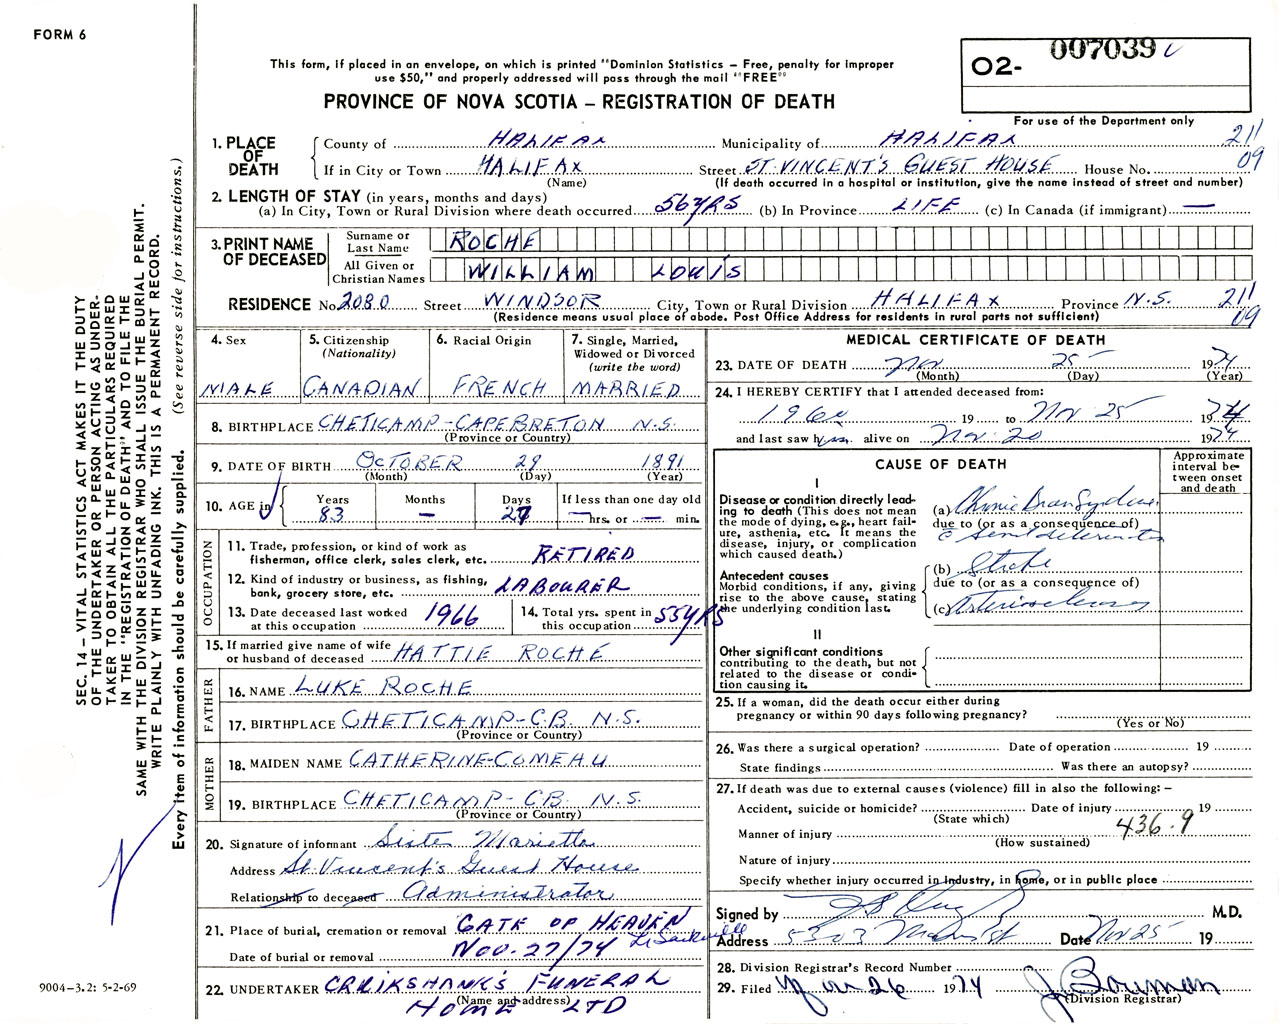 FORM 6
This form, if placed in an envelope, on which is printed "Dominion Statistics – Free, penalty for improper
use $50," and properly addressed will pass through the mail "FREE"
PROVINCE OF NOVA SCOTIA – REGISTRATION OF DEATH
O2- 007039
For use of the Department only
1. PLACE OF DEATH
County of HALIFAX Municipality of HALIFAX 211
If in City or Town HALIFAX Street ST. VINCENT'S GUEST HOUSE House No. 09
(Name) (If death occurred in a hospital or institution, give the name instead of street and number)
2. LENGTH OF STAY (in years, months and days)
(a) In City, Town or Rural Division where death occurred 56 YRS (b) In Province LIFE (c) In Canada (if immigrant) —
3. PRINT NAME OF DECEASED
Surname or Last Name ROCHE
All Given or Christian Names WILLIAM LOUIS
RESIDENCE No. 2080 Street WINDSOR City, Town or Rural Division HALIFAX Province N.S. 211
(Residence means usual place of abode. Post Office Address for residents in rural parts not sufficient) 09
4. Sex 5. Citizenship (Nationality) 6. Racial Origin 7. Single, Married, Widowed or Divorced (write the word)
MALE CANADIAN FRENCH MARRIED
8. BIRTHPLACE CHETICAMP-CAPE BRETON N.S.
(Province or Country)
9. DATE OF BIRTH OCTOBER 29 1891
(Month) (Day) (Year)
10. AGE in Years Months Days If less than one day old
83 — 27 — hrs. or — min.
OCCUPATION
11. Trade, profession, or kind of work as
fisherman, office clerk, sales clerk, etc. RETIRED
12. Kind of industry or business, as fishing,
bank, grocery store, etc. LABOURER
13. Date deceased last worked
at this occupation 1966
14. Total yrs. spent in
this occupation 55 YRS
15. If married give name of wife
or husband of deceased HATTIE ROCHE
FATHER
16. NAME LUKE ROCHE
17. BIRTHPLACE CHETICAMP-C.B. N.S.
(Province or Country)
MOTHER
18. MAIDEN NAME CATHERINE-COMEAU
19. BIRTHPLACE CHETICAMP-CB. N.S.
(Province or Country)
20. Signature of informant Sister Marietta
Address St. Vincent's Guest House
Relationship to deceased Administrator
21. Place of burial, cremation or removal GATE OF HEAVEN L. Sackville
Date of burial or removal NOV. 27/74
22. UNDERTAKER CRUIKSHANK'S FUNERAL
(Name and address)
HOME LTD
MEDICAL CERTIFICATE OF DEATH
23. DATE OF DEATH Nov 25 1974
(Month) (Day) (Year)
24. I HEREBY CERTIFY that I attended deceased from:
19 to Nov 25 1974
and last saw him alive on Nov 20 1974
CAUSE OF DEATH
Approximate interval between onset and death
I
Disease or condition directly lead-
ing to death (This does not mean
the mode of dying, e.g., heart fail-
ure, asthenia, etc. It means the
disease, injury, or complication
which caused death.)
(a) Chronic Brain Syndrome
due to (or as a consequence of)
senile deterioration
Antecedent causes
Morbid conditions, if any, giving
rise to the above cause, stating
the underlying condition last.
(b) Stroke
due to (or as a consequence of)
(c) Arteriosclerosis
II
Other significant conditions
contributing to the death, but not
related to the disease or condi-
tion causing it.
25. If a woman, did the death occur either during
pregnancy or within 90 days following pregnancy?
(Yes or No)
26. Was there a surgical operation? Date of operation 19
State findings Was there an autopsy?
27. If death was due to external causes (violence) fill in also the following: –
Accident, suicide or homicide? Date of injury 19
(State which) 436.9
Manner of injury
(How sustained)
Nature of injury
Specify whether injury occurred in Industry, in home, or in public place
Signed by M.D.
Address 5303 Date Nov 25 19
28. Division Registrar's Record Number
29. Filed Nov 26 1974 J. Bowman
(Division Registrar)
SEC. 14 – VITAL STATISTICS ACT MAKES IT THE DUTY
OF THE UNDERTAKER OR PERSON ACTING AS UNDER-
TAKER TO OBTAIN ALL THE PARTICULARS REQUIRED
IN THE "REGISTRATION OF DEATH" AND TO FILE THE
SAME WITH THE DIVISION REGISTRAR WHO SHALL ISSUE THE BURIAL PERMIT.
WRITE PLAINLY WITH UNFADING INK. THIS IS A PERMANENT RECORD.
Every item of information should be carefully supplied. (See reverse side for instructions.)
9004-3.2: 5-2-69